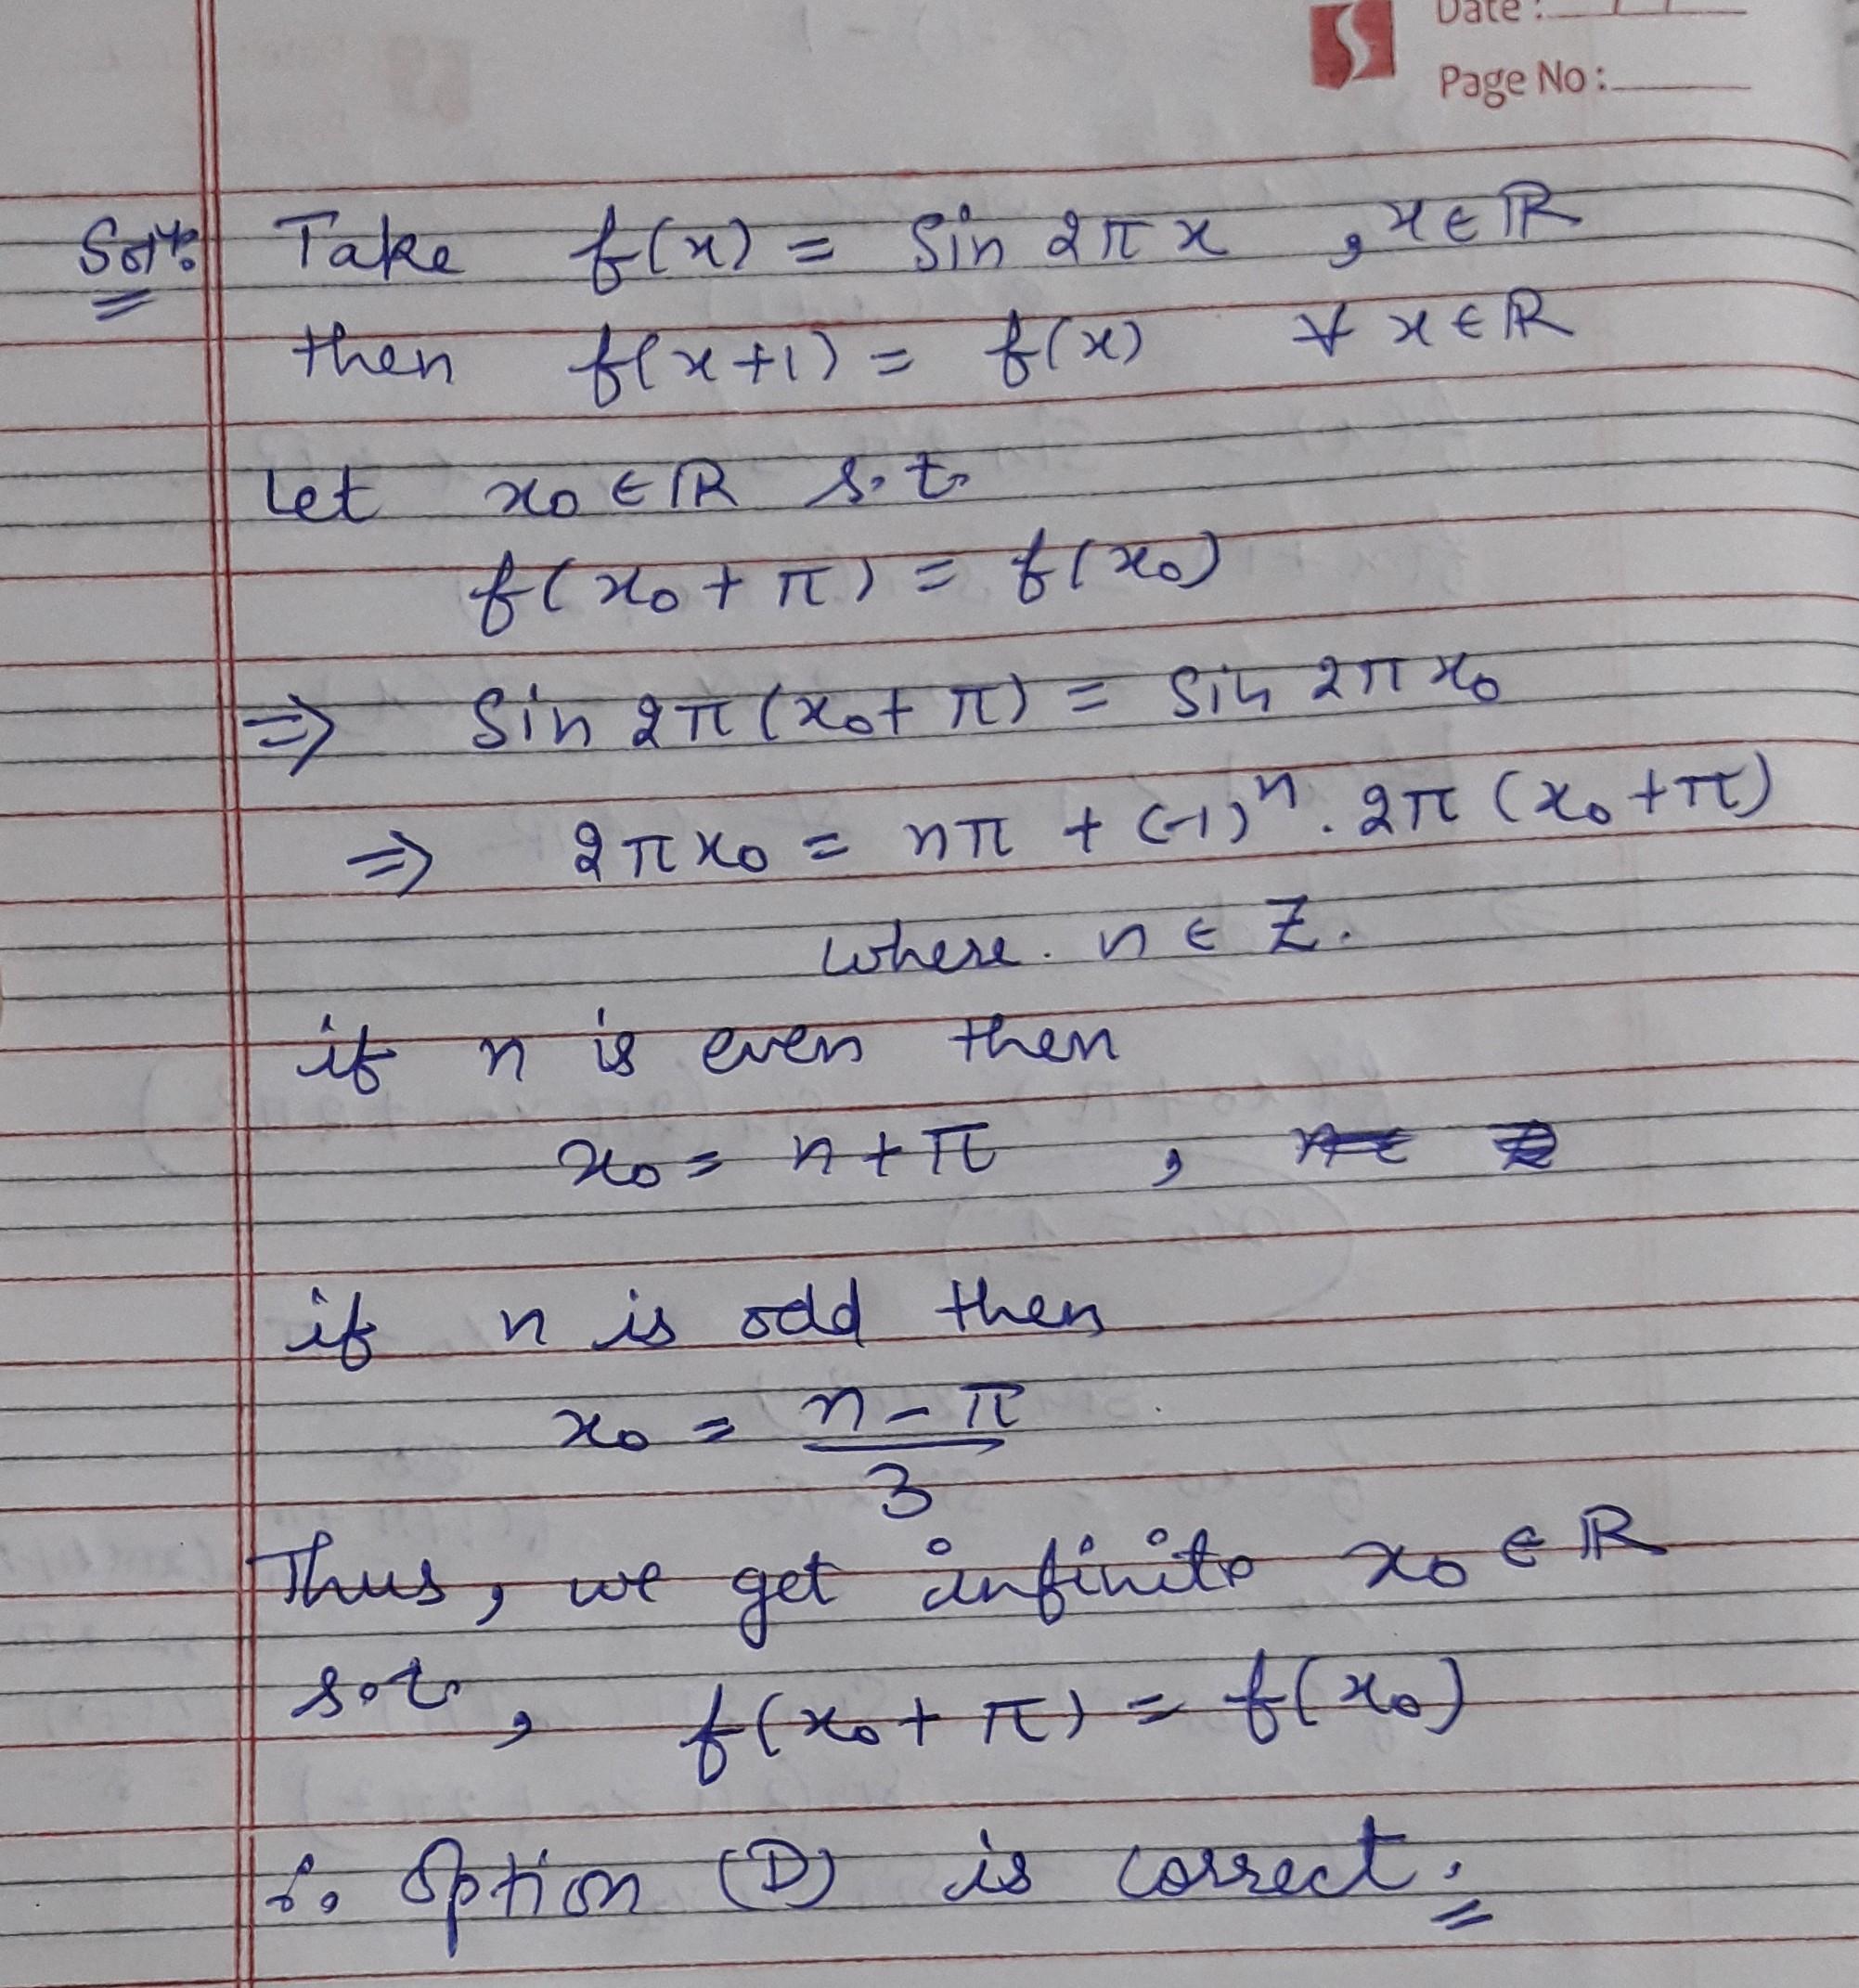 Date : / /
Page No :
Soln: Take f(x) = Sin 2πx , x ∈ ℝ
then f(x+1) = f(x) ∀ x ∈ ℝ
Let x₀ ∈ ℝ s.t.
f(x₀ + π) = f(x₀)
⇒ Sin 2π(x₀ + π) = Sin 2πx₀
⇒ 2πx₀ = nπ + (-1)ⁿ. 2π (x₀ + π)
where. n ∈ Z.
if n is even then
x₀ = n + π ,
if n is odd then
x₀ = (n - π)/3
Thus, we get infinite x₀ ∈ ℝ
s.t. , f(x₀ + π) = f(x₀)
∴ Option (D) is correct.